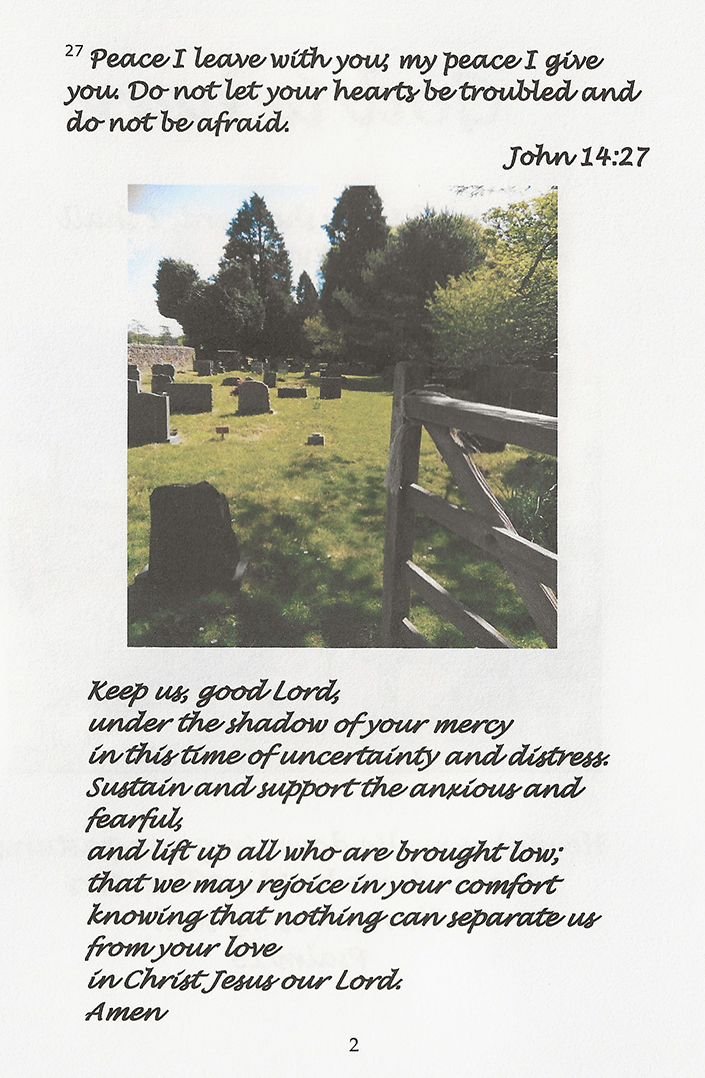 27 Peace I leave with you; my peace I give
you. Do not let your hearts be troubled and
do not be afraid.
John 14:27
Keep us, good Lord,
under the shadow of your mercy
in this time of uncertainty and distress.
Sustain and support the anxious and
fearful,
and lift up all who are brought low;
that we may rejoice in your comfort
knowing that nothing can separate us
from your love
in Christ Jesus our Lord.
Amen
2